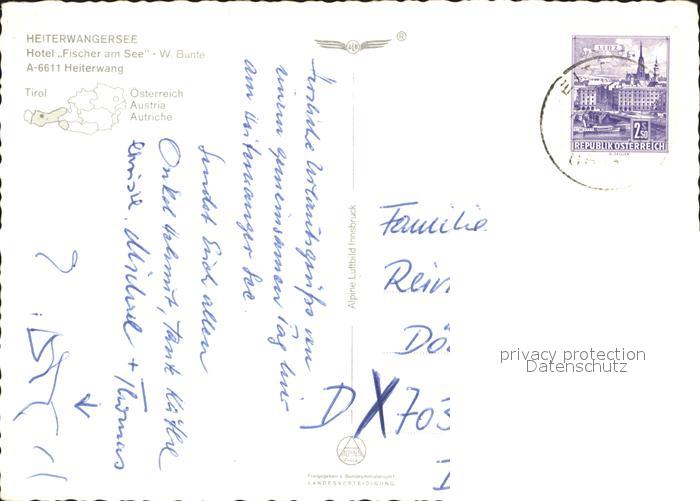 HEITERWANGERSEE
Hotel „Fischer am See" - W. Bunte
A-6611 Heiterwang
Tirol
Österreich
Austria
Autriche
®
LINZ
2.50
REPUBLIK ÖSTERREICH
Herzliche Urlaubsgrüße von
einem gemeinsamen Tag hier
am Heiterwanger See.
sendet Euch allen
Onkel Helmut, Tante Käthe
Michael + Thomas
Alpine Luftbild Innsbruck
Familie
D X 703
privacy protection
Datenschutz
ALPINE
Freigegeben v. Bundesministerium f.
LANDESVERTEIDIGUNG